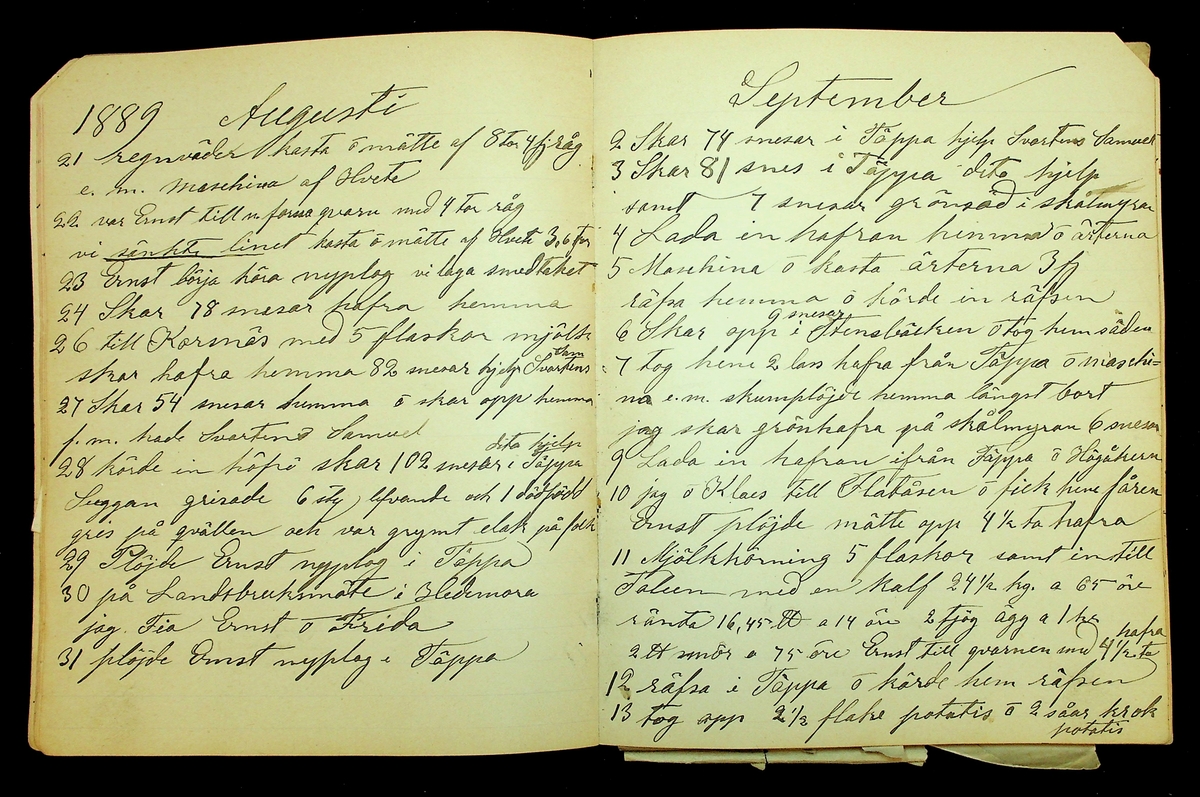 1889 Augusti
21 regnväder kasta o mätte af 8 tor 4 fj råg
e. m. maschina af Hvete
22 var Ernst till n. forna qvarn med 4 tor råg
vi sänkte linet kasta o mätte af Hvete 3,6 tor
23 Ernst börja köra nyplog vi laga smedtaket
24 Skar 78 snesar hafra hemma
26 till Korsnäs med 5 flaskor mjölk
skar hafra hemma 82 snesar hjelp Svartens
27 Skar 54 snesar hemma o skar opp hemma
f. m. hade Svartens Samuel
28 körde in höfrö skar 102 snesar i Täppa dito hjelp
Suggan grisade 6 sty lefvande och 1 dödfödd
gris på qvällen och var grymt elak på folk
29 Plöjde Ernst nyplog i Täppa
30 på Landsbruksmöte i Hedemora
jag Fia Ernst o Frida
31 plöjde Ernst nyplog i Täppa
September
2 Skar 74 snesar i Täppa hjelp Svartens Samuel
3 Skar 81 snes i Täppa dito hjelp
samt 7 snesar grönsäd i skålmyran
4 Lada in hafran hemma o ärterna
5 Maschina o kasta ärterna 3 fj
räfsa hemma o körde in räfsen
6 Skar opp 9 snesar i Stensbäcken o tog hem säden
7 tog hem 2 lass hafra från Täppa o maschi=
na e. m. skumplöjde hemma längst bort
jag skar grönhafra på skålmyran 6 snesar
9 Lada in hafran ifrån Täppa o Högåkern
10 jag o Klaes till Flatåsen o fick hem fåren
Ernst plöjde mätte opp 4 1/2 to hafra
11 Mjölkkörning 5 flaskor samt in till
Falun med en kalf 24 1/2 kg. a 65 öre
ränta 16,45 ℔ a 14 öre 2 tjög ägg a 1 kr
2 ℔ smör a 75 öre Ernst till qvarnen med 4 1/2 to hafra
12 räfsa i Täppa o körde hem räfsen
13 tog opp 2 1/2 flake potatis o 2 såar krok
potatis